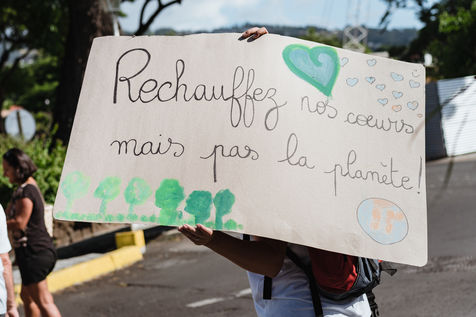 Rechauffez nos cœurs
mais pas la planète!